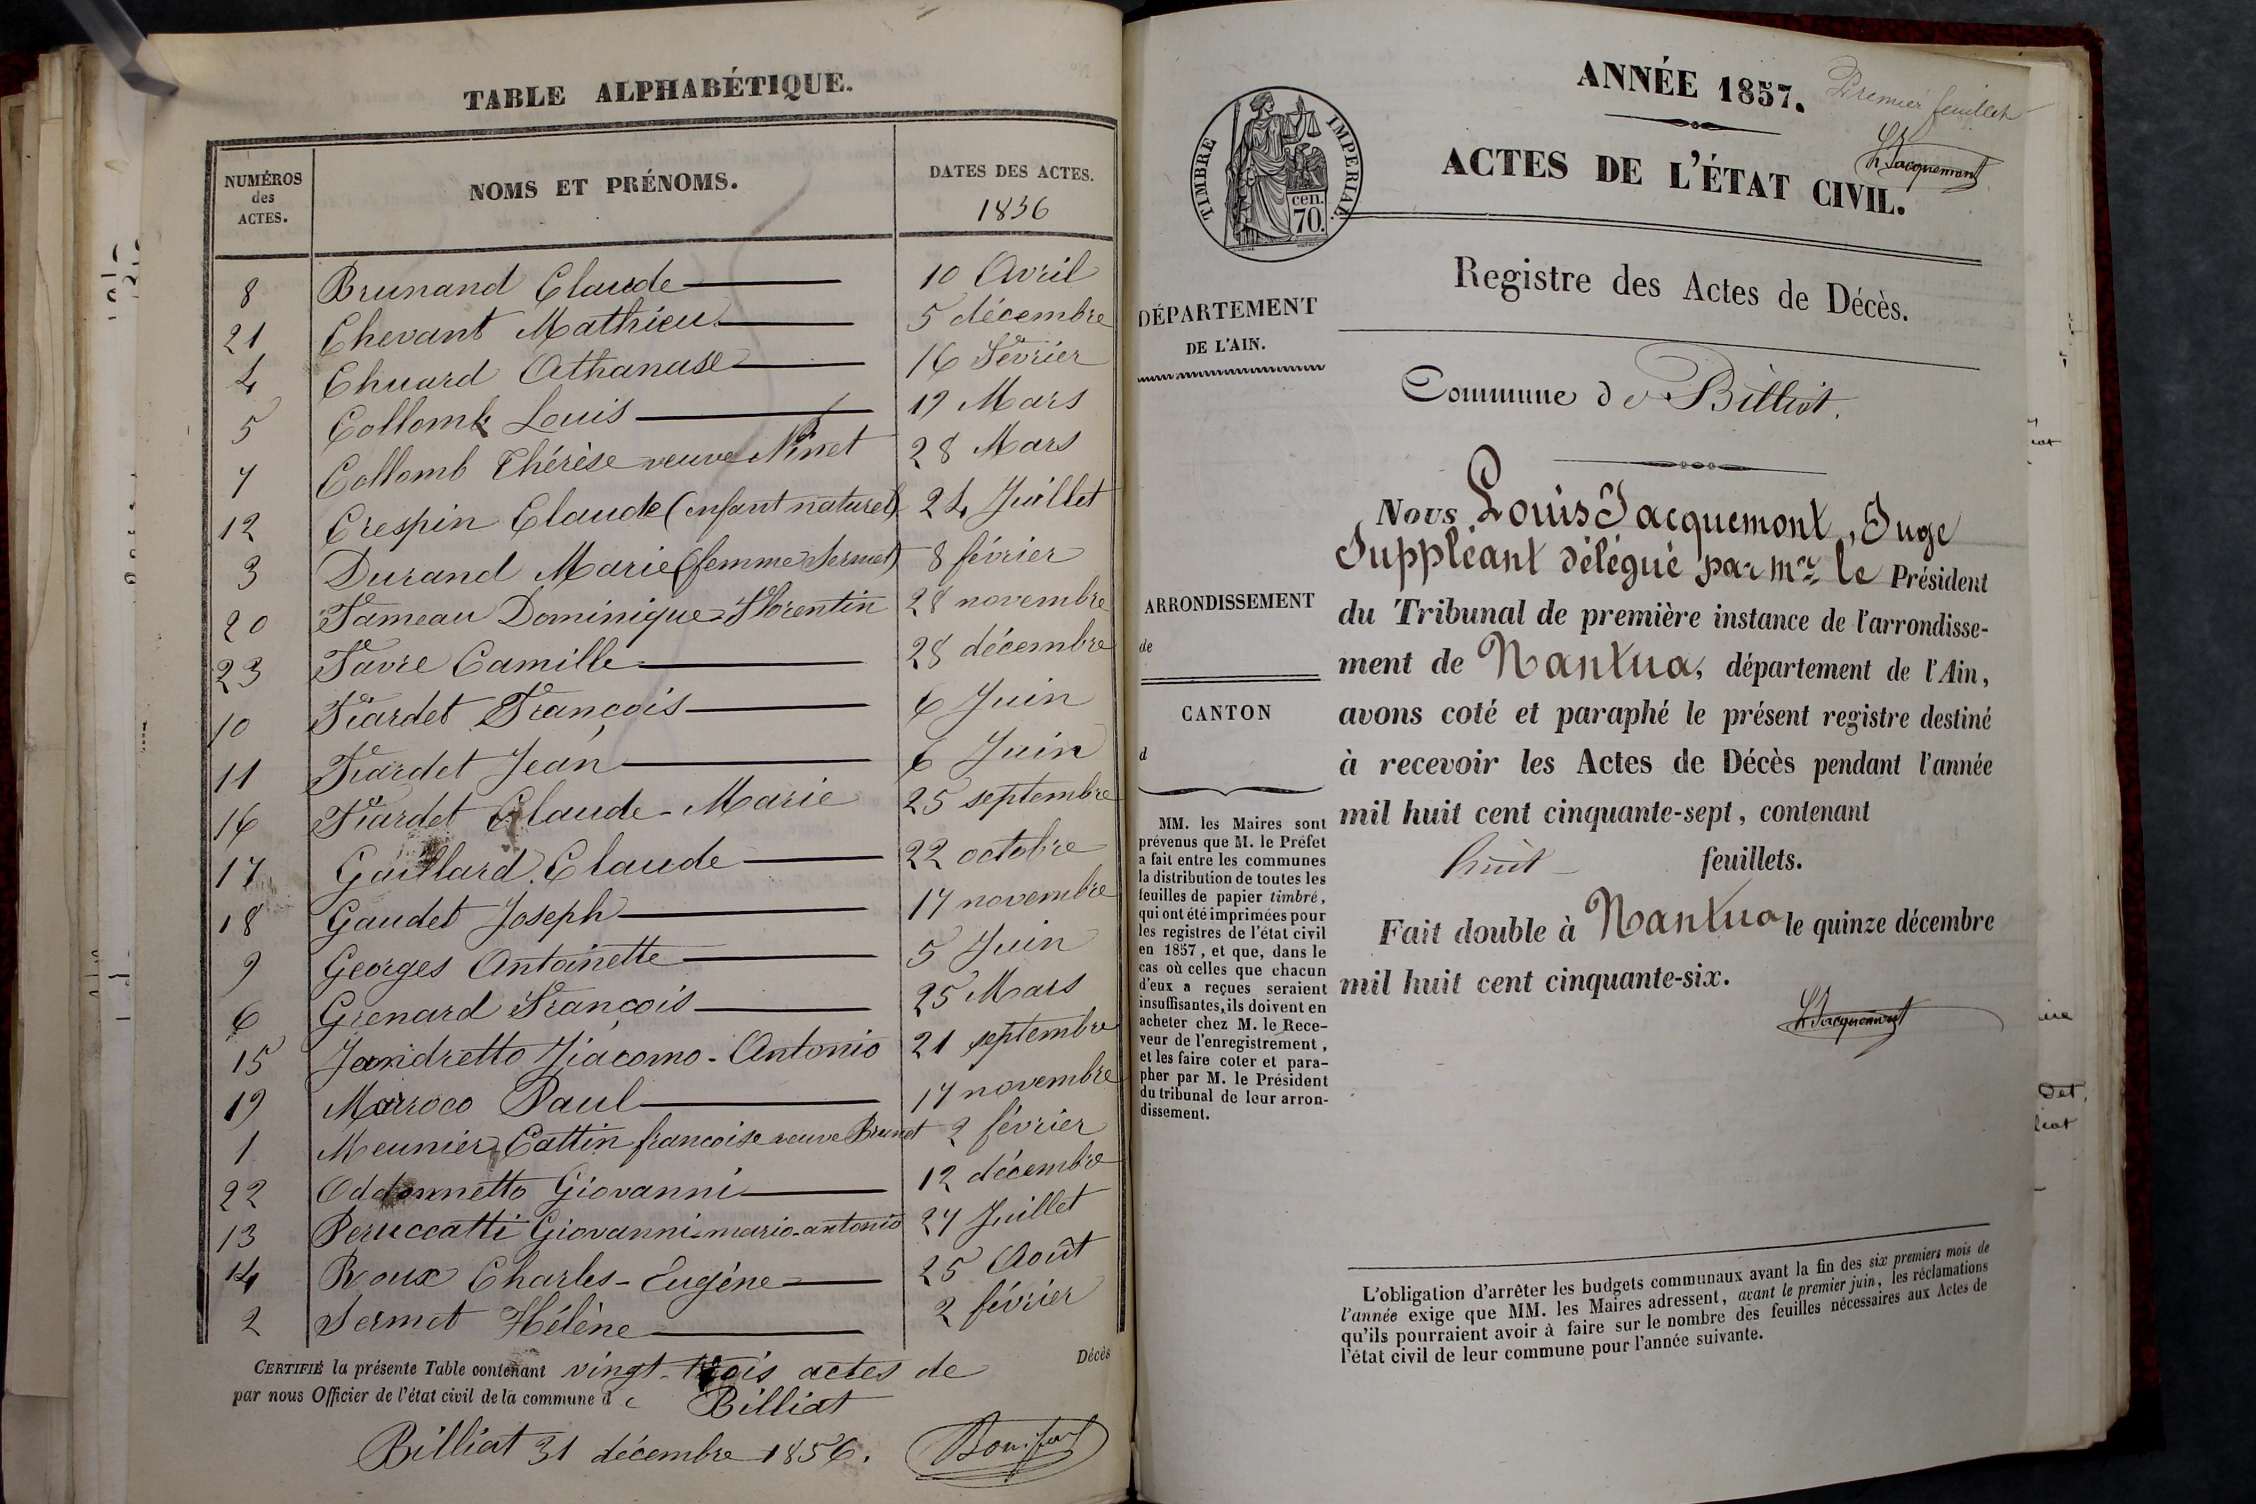 TABLE ALPHABÉTIQUE.
NUMÉROS des ACTES.
NOMS ET PRÉNOMS.
DATES DES ACTES.
1856
8 Brunand Claude 10 Avril
21 Chevant Mathieu 5 décembre
4 Chuard Athanase 16 Février
5 Collomb Louis 19 Mars
7 Collomb Thérèse veuve Ninet 28 Mars
12 Crespin Claude (enfant naturel) 24 Juillet
3 Durand Marie (femme Sermet) 8 février
20 Fameau Dominique-Florentin 28 novembre
23 Favre Camille 28 décembre
10 Fiardet François 6 Juin
11 Fiardet Jean 6 Juin
16 Fiardet Claude-Marie 25 septembre
17 Gaillard Claude 22 octobre
18 Gaudet Joseph 17 novembre
9 Georges Antoinette 5 Juin
6 Grenard François 25 Mars
15 Jeandretto Jiacomo-Antonio 21 septembre
19 Marroco Paul 17 novembre
1 Meunier Cattin françoise veuve Brunet 2 février
22 Oddonnetto Giovanni 12 décembre
13 Peruccatti Giovanni-mario-antonio 27 Juillet
14 Roux Charles-Eugène 25 Août
2 Sermet Hélène 2 février
CERTIFIÉ la présente Table contenant vingt-trois actes de Décès
par nous Officier de l'état civil de la commune de Billiat
Billiat 31 décembre 1856.
ANNÉE 1857.
Premier feuillet
L. Jacquemont
TIMBRE IMPERIAL
70 cen.
ACTES DE L'ÉTAT CIVIL.
Registre des Actes de Décès.
DÉPARTEMENT
DE L'AIN.
Commune de Billiat.
Nous Louis Jacquemont, Juge
Suppléant délégué par mr le Président
du Tribunal de première instance de l'arrondisse-
ment de Nantua, département de l'Ain,
avons coté et paraphé le présent registre destiné
à recevoir les Actes de Décès pendant l'année
mil huit cent cinquante-sept, contenant
huit feuillets.
Fait double à Nantua le quinze décembre
mil huit cent cinquante-six.
L. Jacquemont
ARRONDISSEMENT
de
CANTON
d
MM. les Maires sont
prévenus que M. le Préfet
a fait entre les communes
la distribution de toutes les
feuilles de papier timbré,
qui ont été imprimées pour
les registres de l'état civil
en 1857, et que, dans le
cas où celles que chacun
d'eux a reçues seraient
insuffisantes, ils doivent en
acheter chez M. le Rece-
veur de l'enregistrement,
et les faire coter et para-
pher par M. le Président
du tribunal de leur arron-
dissement.
L'obligation d'arrêter les budgets communaux avant la fin des six premiers mois de
l'année exige que MM. les Maires adressent, avant le premier juin, les réclamations
qu'ils pourraient avoir à faire sur le nombre des feuilles nécessaires aux Actes de
l'état civil de leur commune pour l'année suivante.